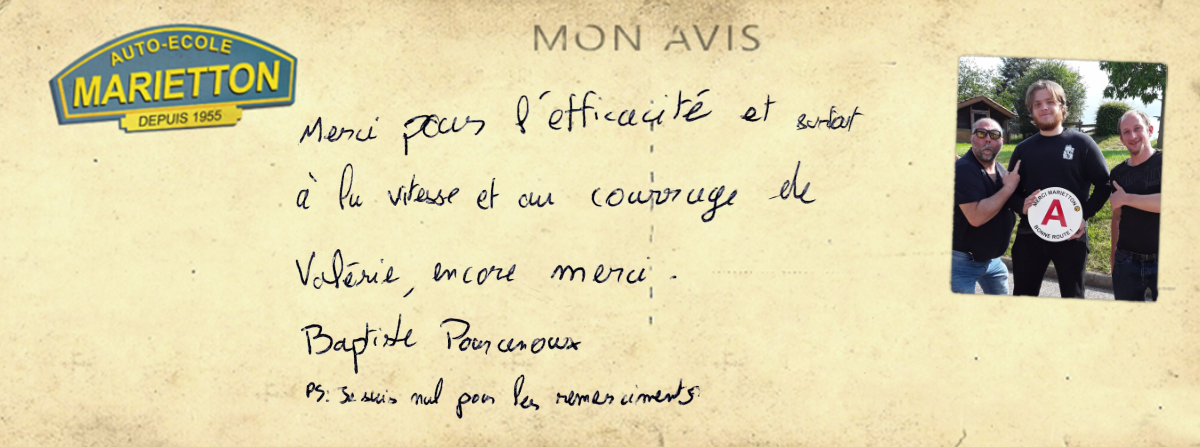 AUTO-ECOLE
MARIETTON
DEPUIS 1955
MON AVIS
Merci pour l'efficacité et surtout
à la vitesse et au courrage de
Valérie, encore merci.
Baptiste
PS: Je suis nul pour les remerciments.
MERCI MARIETTON
A
BONNE ROUTE !